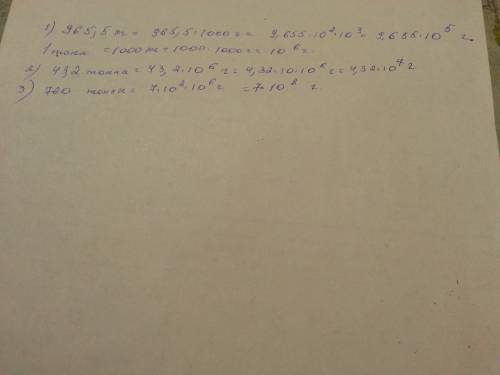 1) 965,5 m = 965,5·1000 г = 9,655·10² ·10³ = 9,655·10⁵ г.
1 тонна = 1000 m = 1000·1000 г = 10⁶ г
2) 43,2 тонна = 43,2·10⁶ г = 4,32·10·10⁶ г = 4,32·10⁷ г
3) 700 тонна = 7·10²·10⁶ г = 7·10⁸ г